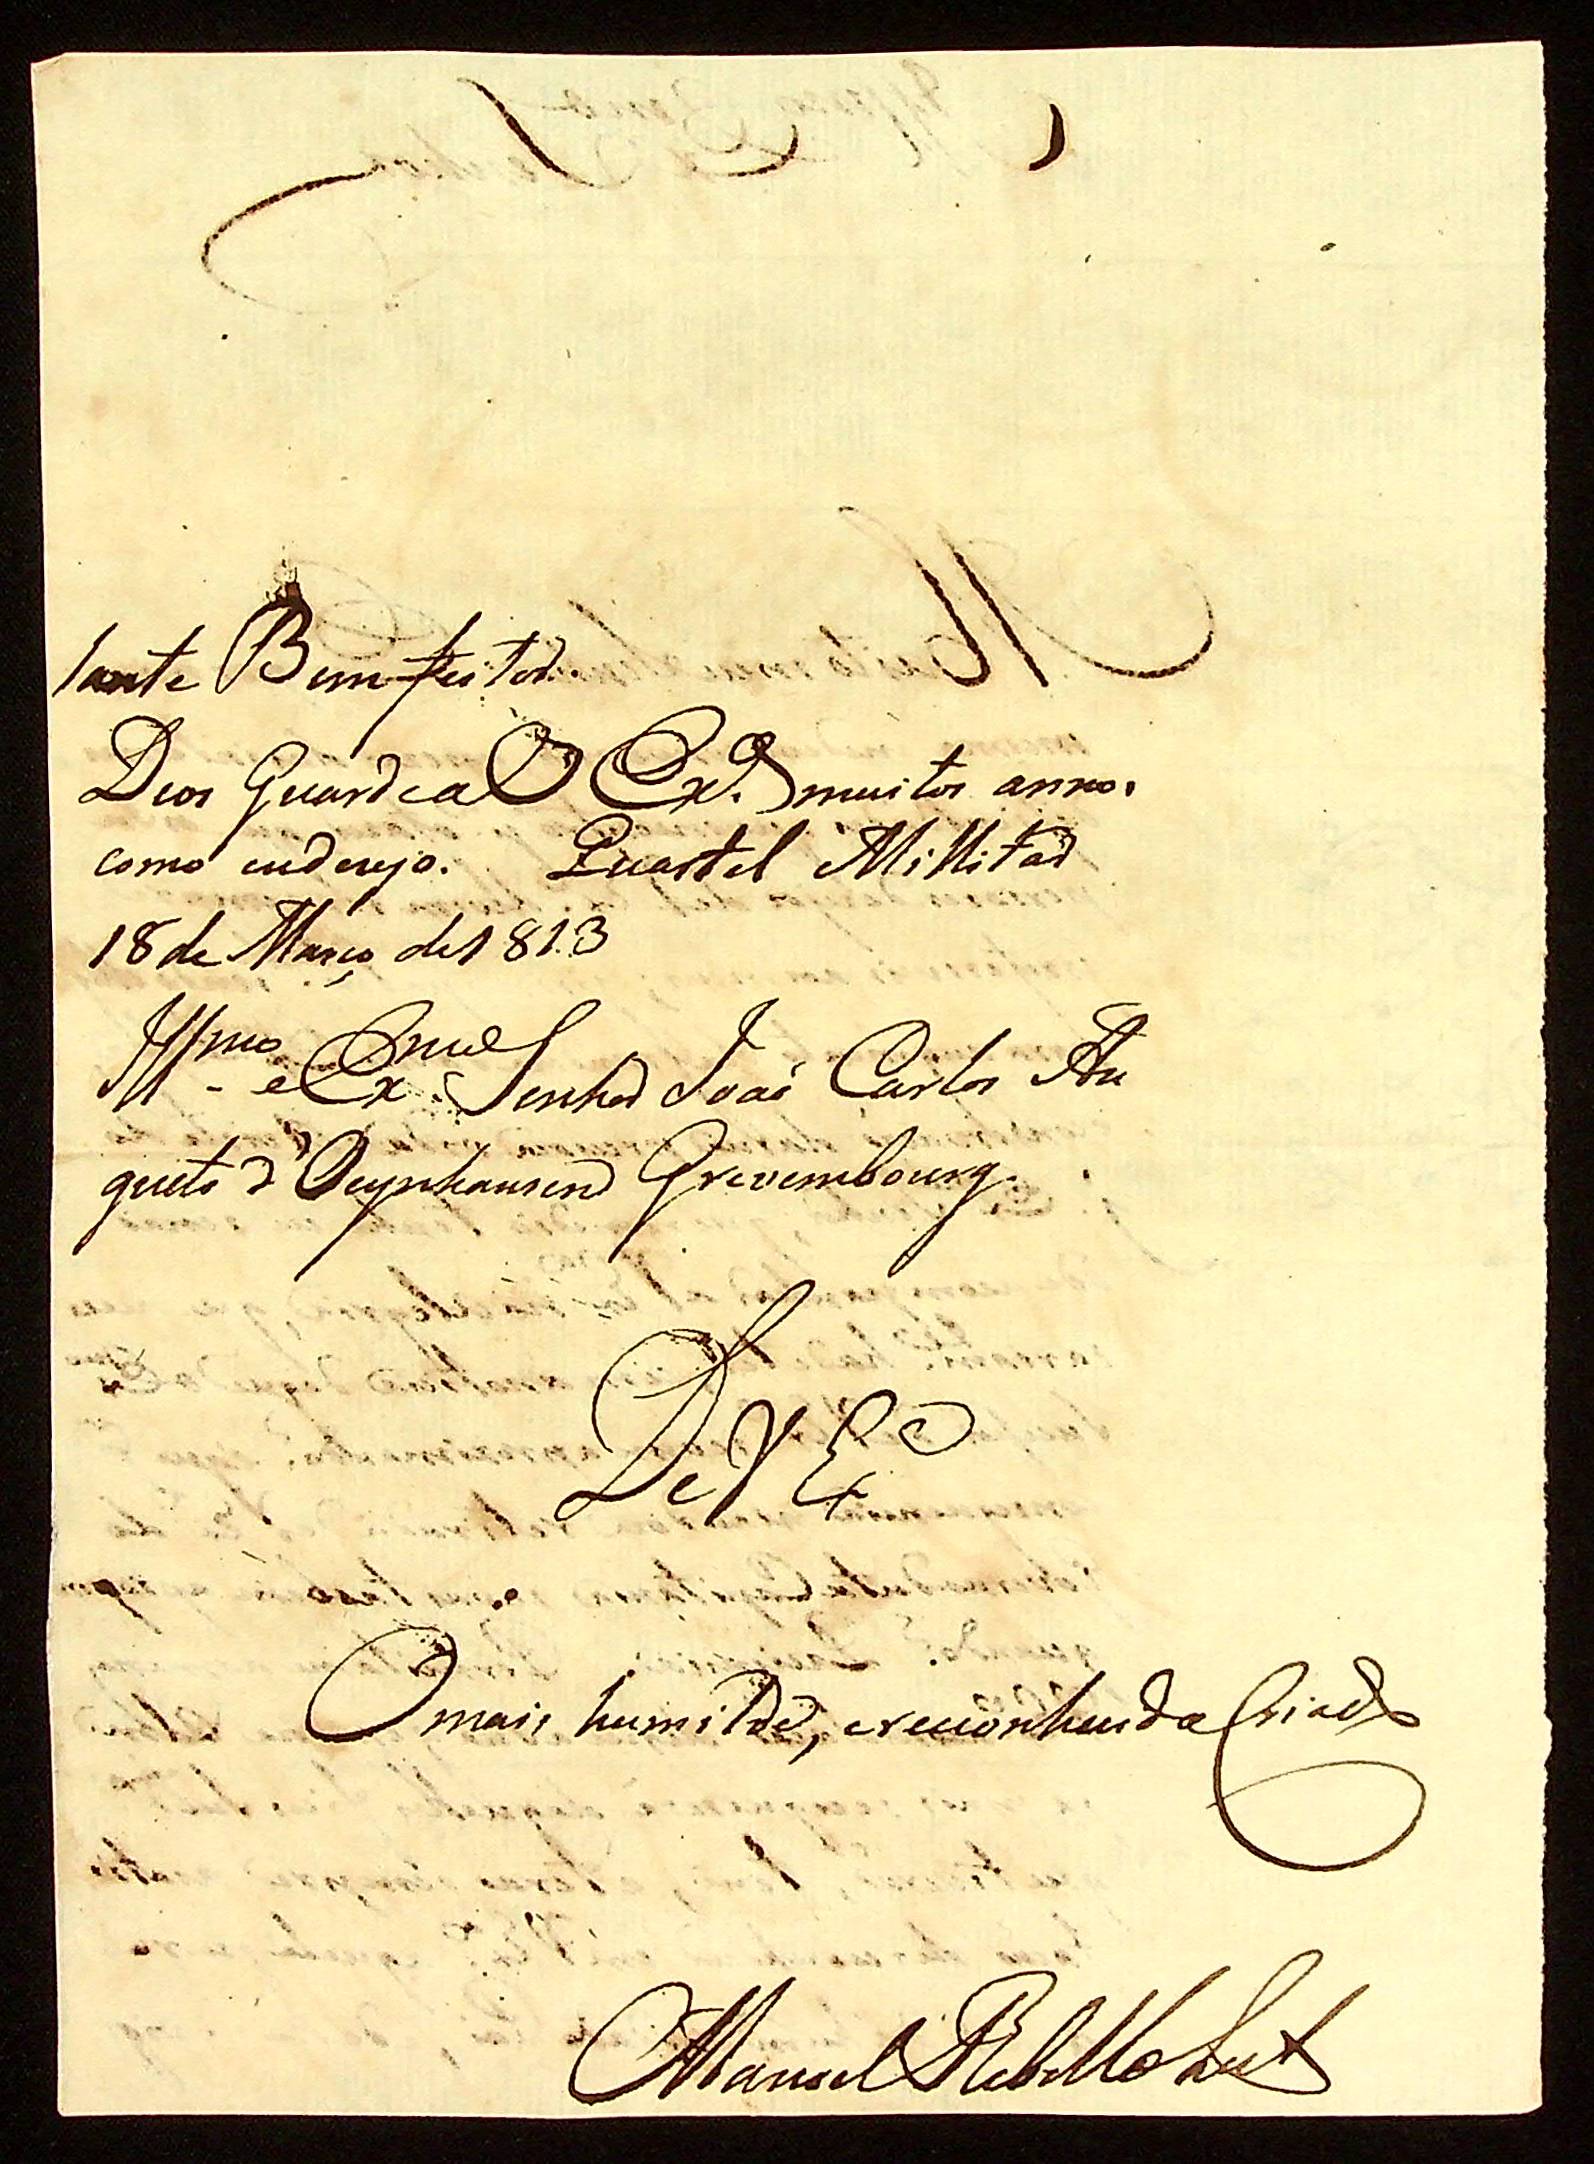 tante Bemfeitor.
Deos Guarde a V Exª muitos annos
como eu dezejo. Quartel Millitar
18 de Março de 1813
Illmo e Exmo Senhor João Carlos Au
gusto d'Oeynhausend Grevembourg.
De V Exª
O mais humilde, e reconhecido Criado
Manoel Rebello